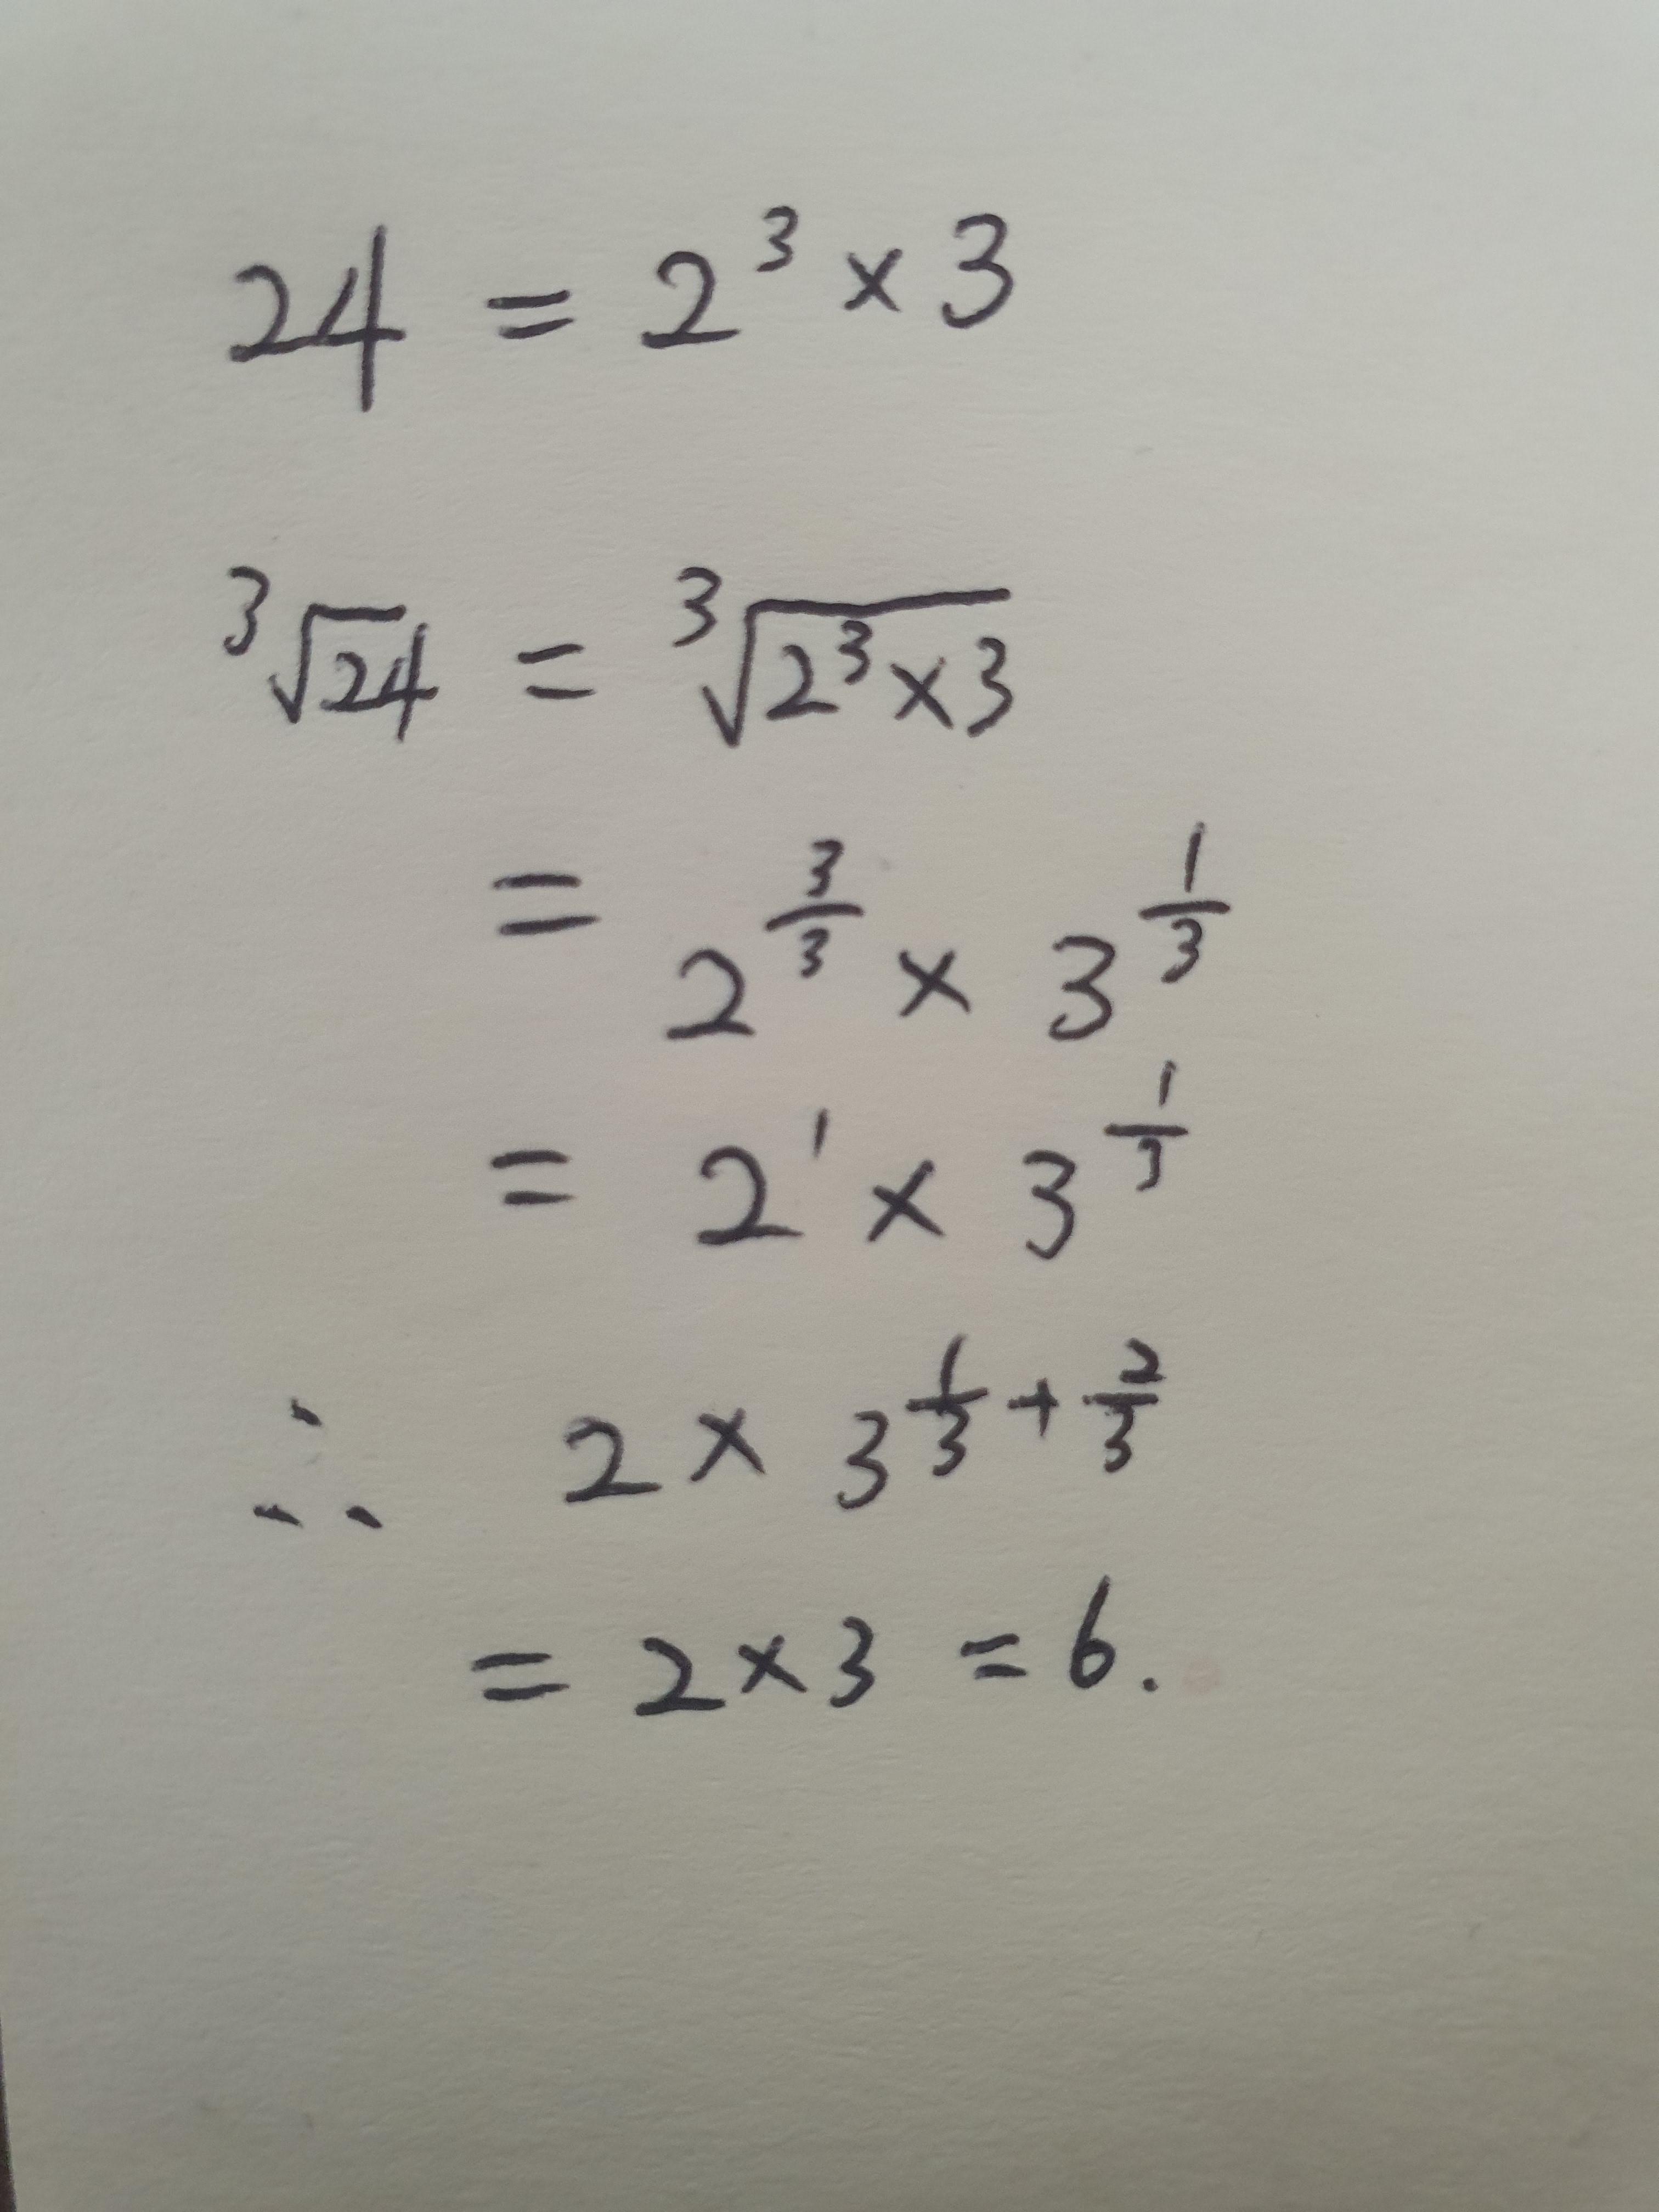 24 = 2³ × 3
³√24 = ³√(2³×3)
= 2^(3/3) × 3^(1/3)
= 2¹ × 3^(1/3)
∴ 2 × 3^(1/3 + 2/3)
= 2 × 3 = 6.